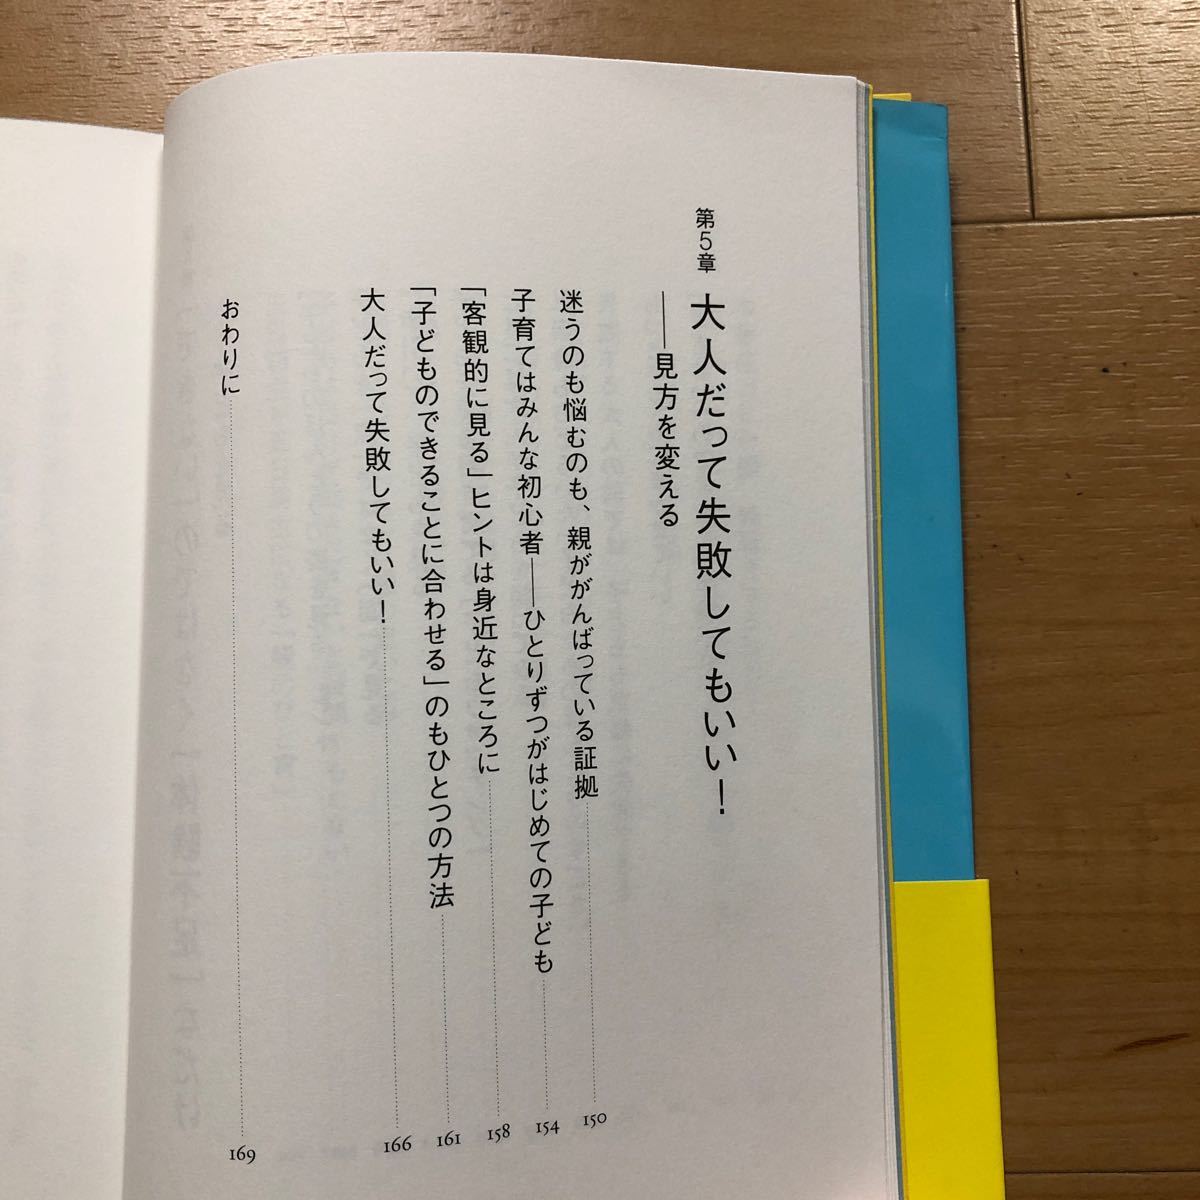 第5章 大人だって失敗してもいい！
――見方を変える
迷うのも悩むのも、親ががんばっている証拠……150
子育てはみんな初心者――ひとりずつがはじめての子ども……154
「客観的に見る」ヒントは身近なところに……158
「子どものできることに合わせる」のもひとつの方法……161
大人だって失敗してもいい！……166
おわりに……169